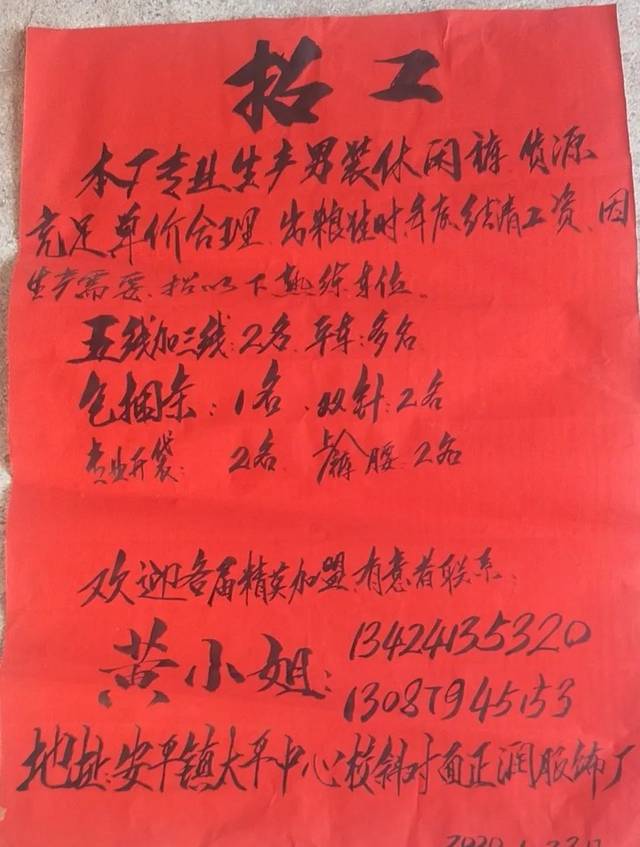 招工
本厂专业生产男装休闲裤 货源
充足 单价合理 出粮准时 年底结清工资 因
生产需要 招以下熟练车位
五线加三线:2名 平车:多名
包捆条:1名、双针:2名
专业开袋: 2名 上裤腰 2名
欢迎各届精英加盟 有意者联系
黄小姐: 13424135320
13087945153
地址:安平镇大平中心校斜对面正润服饰厂